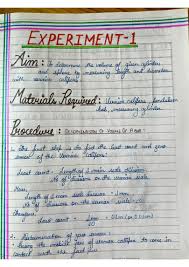 EXPERIMENT-1
Aim: To determine the volume of given cylinder
and sphere by measuring length and diameter
with vernier calipers
Materials Required: Vernier calipers, pendulum
bob, measuring cylinder
Procedure: DETERMINATION OF
In the first step is to find the least count and zero
error of the Vernier Calipers
Least count = Length of 1 main scale division
No of divisions on the vernier scale
Now,
Length of 1 main scale division = 1 mm
of divisions on the vernier scale
Least Count =
2. Determination of zero error:
the movable jaw of vernier calipers to come in
contact with the fixed jaw